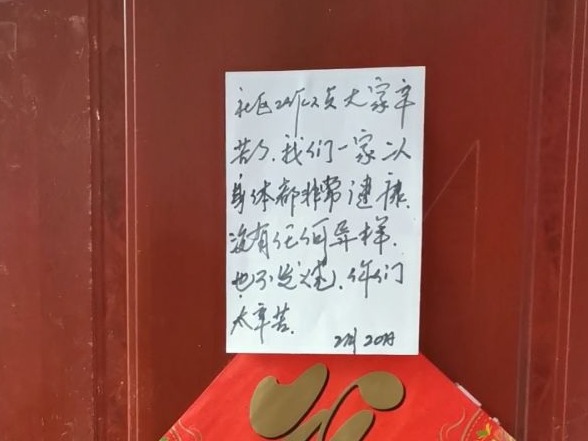 社区工作人员大家辛
苦了.我们一家人
身体都非常健康.
没有任何异样.
也不发烧.你们
太辛苦.
2月20日